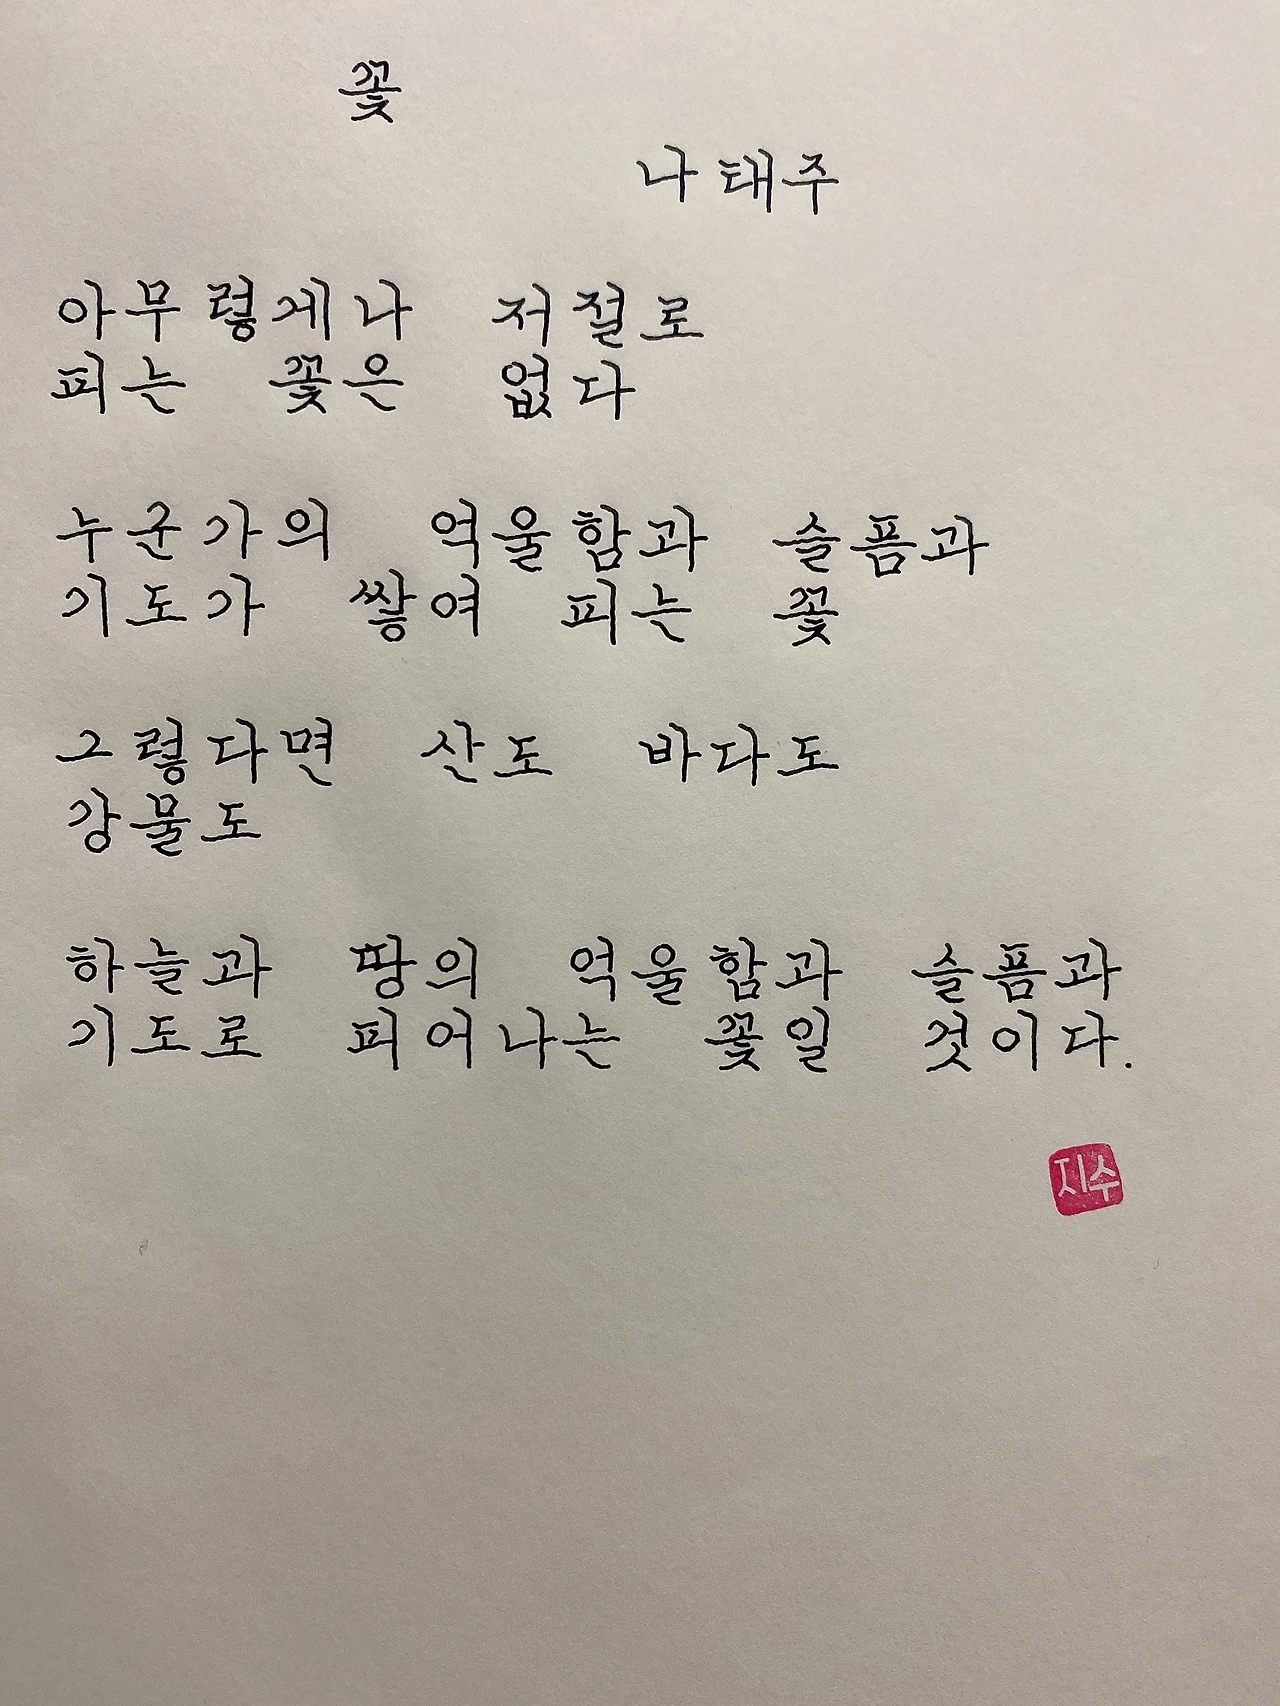 꽃
나태주
아무렇게나 저절로
피는 꽃은 없다
누군가의 억울함과 슬픔과
기도가 쌓여 피는 꽃
그렇다면 산도 바다도
강물도
하늘과 땅의 억울함과 슬픔과
기도로 피어나는 꽃일 것이다.
지수